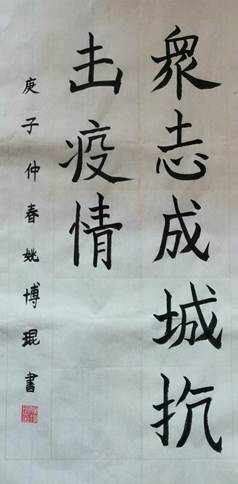 眾志成城抗
击疫情
庚子仲春姚博琨書